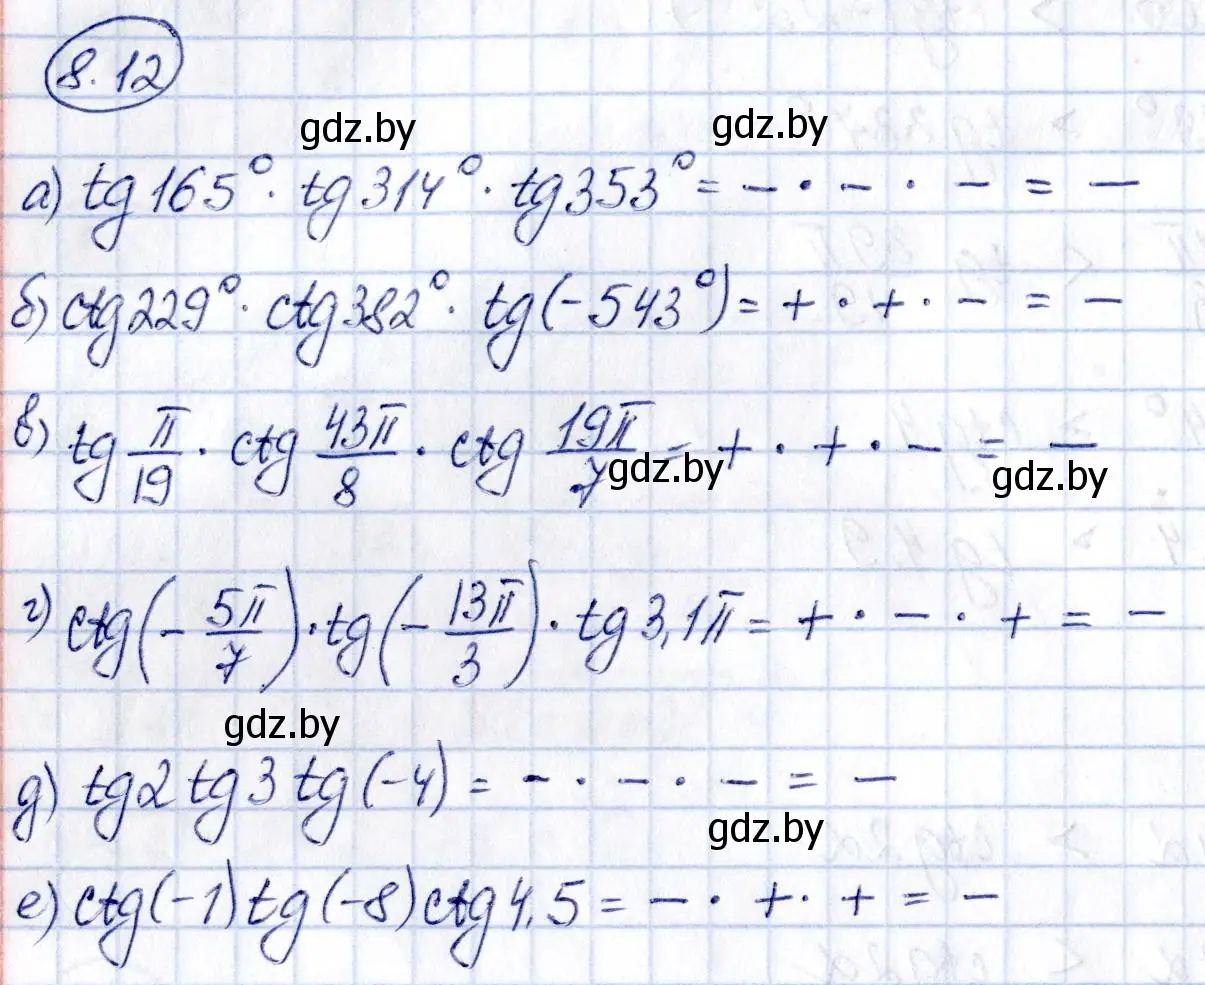 8.12
gdz.by
gdz.by
а) tg 165° · tg 314° · tg 353° = − · − · − = −
б) ctg 229° · ctg 382° · tg(−543°) = + · + · − = −
в) tg π/19 · ctg 43π/8 · ctg 19π/7 = + · + · − = −
gdz.by
gdz.by
г) ctg(−5π/7) · tg(−13π/3) · tg 3,1π = + · − · + = −
gdz.by
д) tg 2 tg 3 tg(−4) = − · − · − = −
gdz.by
е) ctg(−1) tg(−8) ctg 4,5 = − · + · + = −